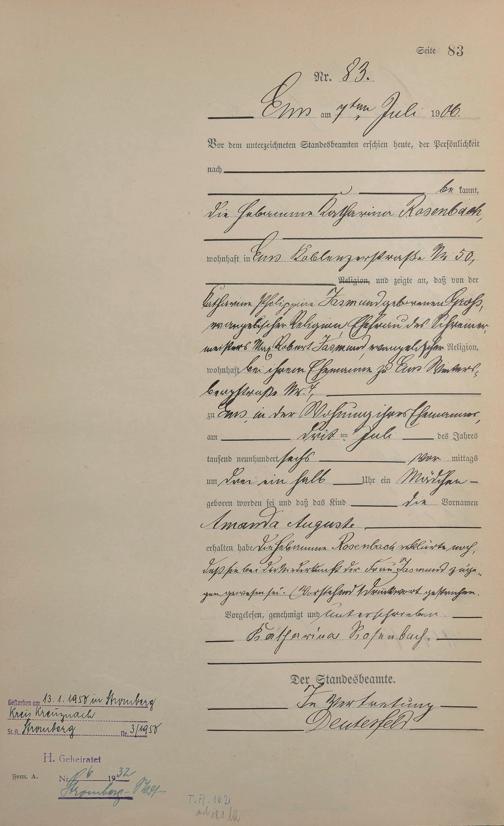 Seite 83
Nr. 83.
Ems am 7ten Juli 1906.
Vor dem unterzeichneten Standesbeamten erschien heute, der Persönlichkeit
nach
be kannt,
die Hebamme Katharina Rosenbach,
wohnhaft in Ems Koblenzerstraße Nr 50,
Religion, und zeigte an, daß von der
Katharine Philippine geborenen Groß,
evangelischer Religion, Ehefrau des Schreiner-
meisters Robert evangelischer Religion,
wohnhaft bei ihrem Ehemanne zu Ems
straße Nr. 7,
zu Ems, in der Wohnung ihres Ehemannes,
am dritten Juli des Jahres
tausend neunhundert sechs Vor mittags
um drei ein halb Uhr ein Mädchen
geboren worden sei und daß das Kind die Vornamen
Amanda Auguste
erhalten habe. Die Hebamme Rosenbach erklärte noch,
daß sie bei der Niederkunft der Frau zuge-
gen gewesen sei. (Vorstehend 1 Druckwort gestrichen.
Vorgelesen, genehmigt und unterschrieben
Katharina Rosenbach.
Der Standesbeamte.
In Vertretung
Gestorben am 13.1.1950 in Stromberg
Kreis Kreuznach
St.A. Stromberg Nr. 3/1950
H. Geheiratet
Nr. 6 1932
Stromberg
Form. A.